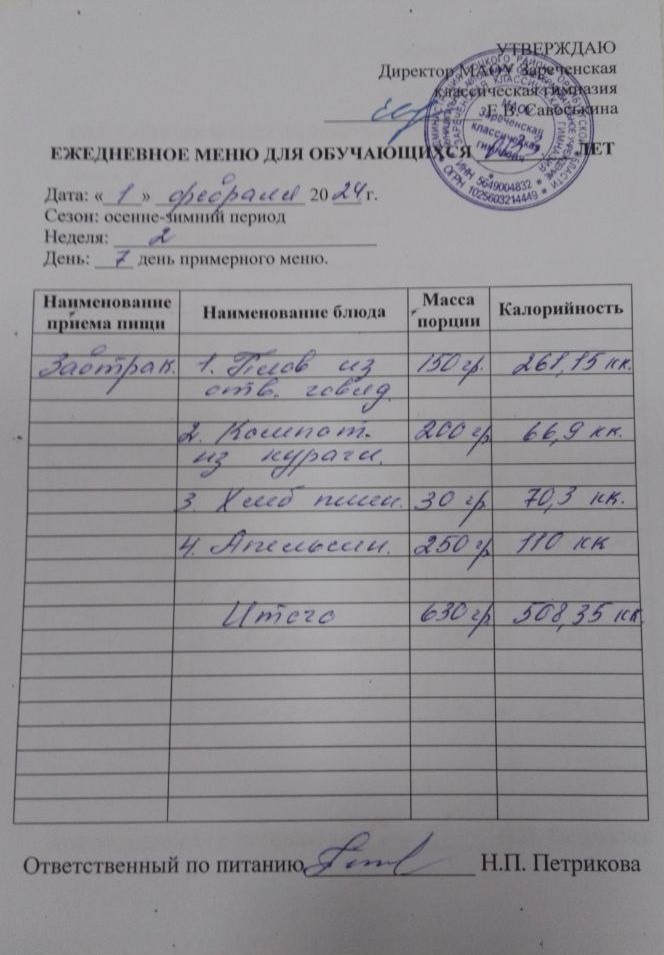 УТВЕРЖДАЮ
Директор МАОУ Зареченская
классическая гимназия
Е.В. Савоськина
МАОУ
Зареченская
классическая
гимназия
ИНН 5649004832
ОГРН 1025603214449
ЕЖЕДНЕВНОЕ МЕНЮ ДЛЯ ОБУЧАЮЩИХСЯ ЛЕТ
Дата: « 1 » февраля 2024 г.
Сезон: осенне-зимний период
Неделя: 2
День: 7 день примерного меню.
Наименование приема пищи Наименование блюда Масса порции Калорийность
Завтрак. 1. Плов из 150 гр. 261,15 кк.
отв. говяд.
2. Компот 200 гр 66,9 кк.
из кураги.
3. Хлеб пшен. 30 гр 70,3 кк.
4. Апельсин. 250 гр 110 кк
Итого 630 гр 508,35 кк.
Ответственный по питанию Н.П. Петрикова